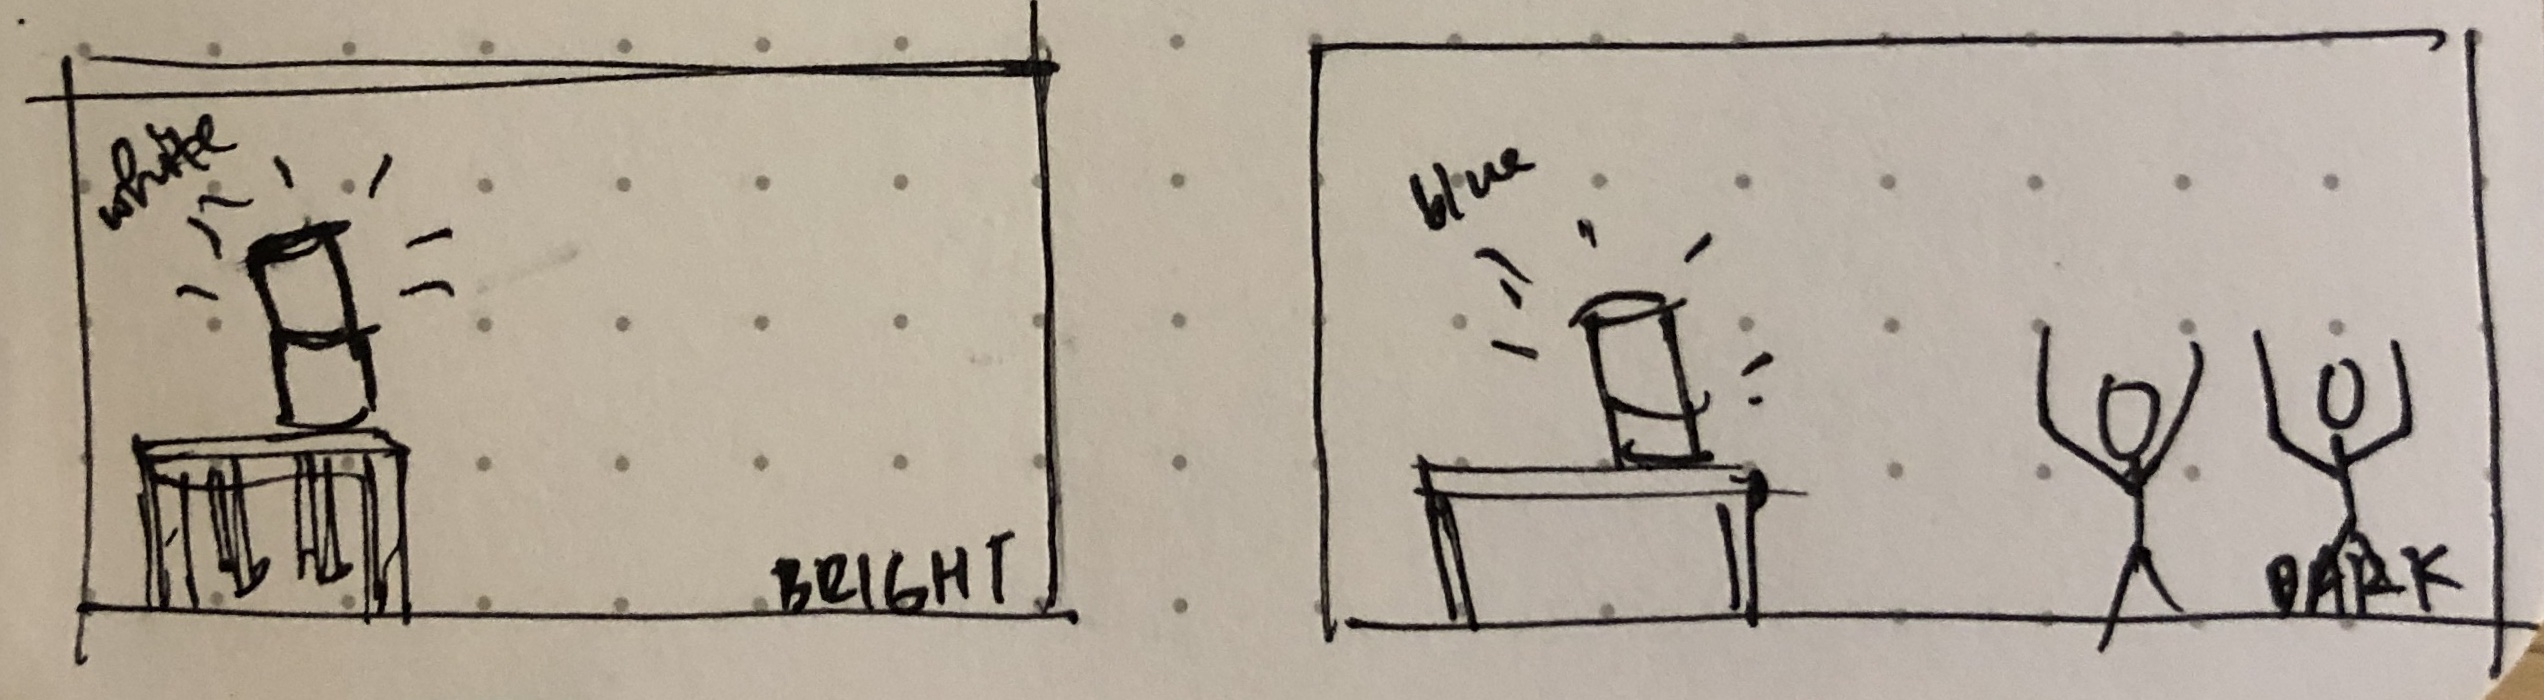 white
BRIGHT
blue
DARK